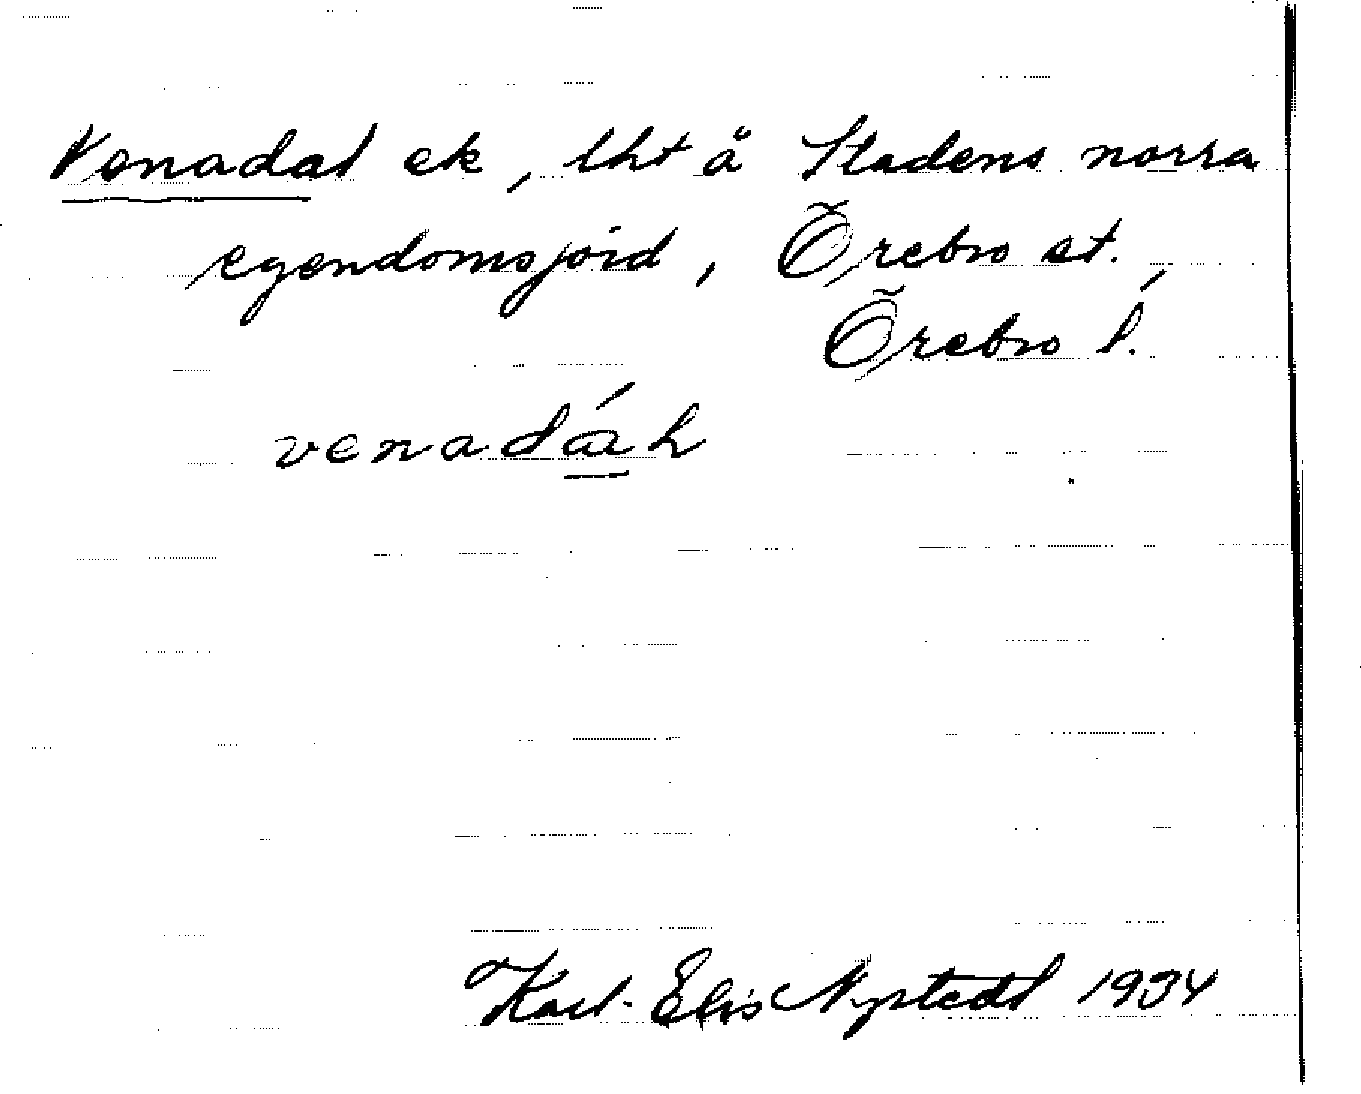 Venadal ek, lht å Stadens norra
egendomsjord, Örebro st.,
Örebro l.
venadáh
Karl-Elis Nystedt 1934